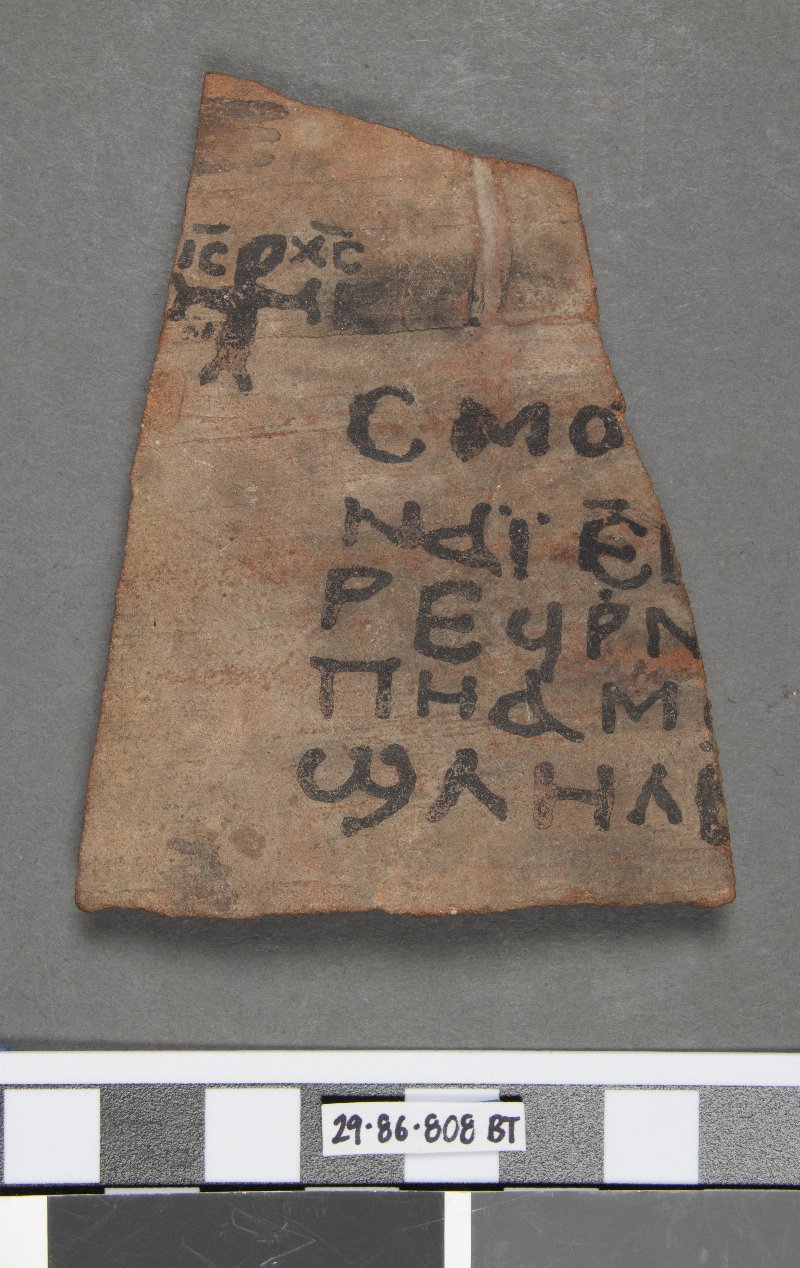 ⲓ̅ⲥ̅ ⲭ̅ⲥ̅
ⲥⲙⲟ
ⲛⲁⲓ̈ ⲉ̅
ⲣⲉϥⲣⲛ
ⲡⲏⲁⲙ
ϣⲗⲏⲗ
29-86-808 BT